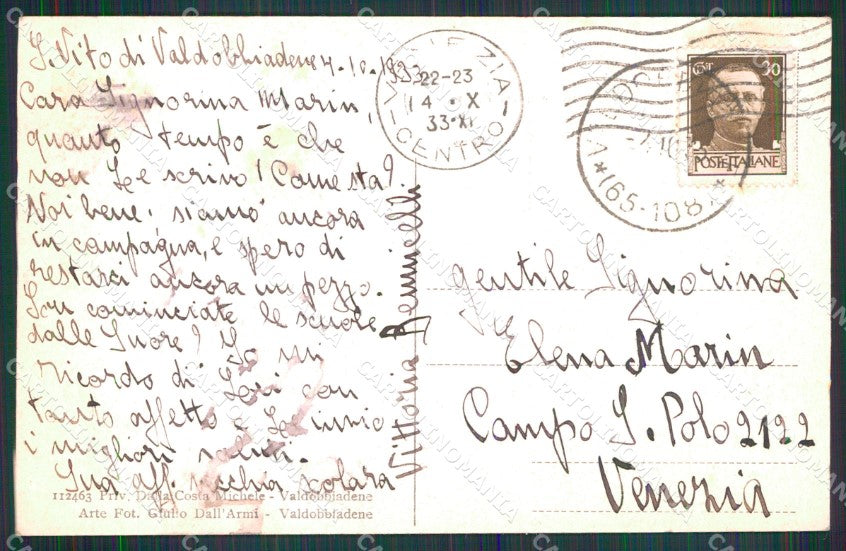 S. Vito di Valdobbiadene 4-10-1933
Cara Signorina Marin,
quanto tempo è che
non Le scrivo! Come sta?
Noi bene, siamo ancora
in campagna, e spero di
restarci ancora un pezzo.
Son cominciate le scuole
dalle Suore? Io mi
ricordo di Loei con
tanto affetto e Le invio
i migliori saluti.
Sua aff. vecchia scolara
Vittoria
112463 Priv. Dalla Costa Michele - Valdobbiadene
Arte Fot. Giulio Dall'Armi - Valdobbiadene
VENEZIA
22-23
4 · X
33·XI
CENTRO
*(65-108)*
Cent 30
POSTE ITALIANE
gentile Signorina
Elena Marin
Campo S. Polo 2122
Venezia
CARTOLINOMANIA